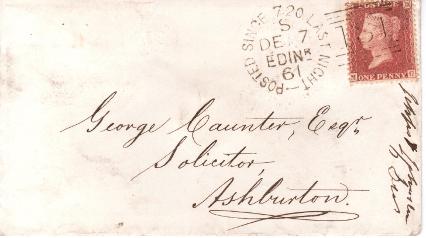 POSTED SINCE 7.20 LAST NIGHT
S
DE 7
EDINR
61
131
ONE PENNY
George Caunter, Esqr,
Solicitor,
Ashburton.